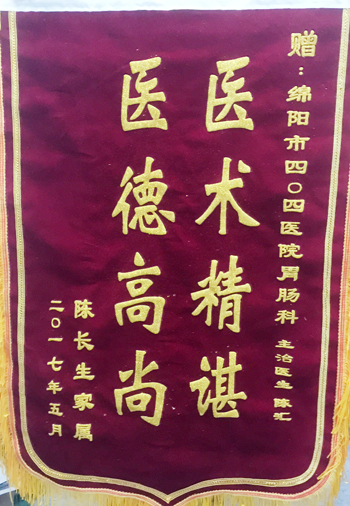 赠：绵阳市四〇四医院胃肠科 主治医生 陈汇
医术精谌
医德高尚
陈长生家属
二〇一七年五月